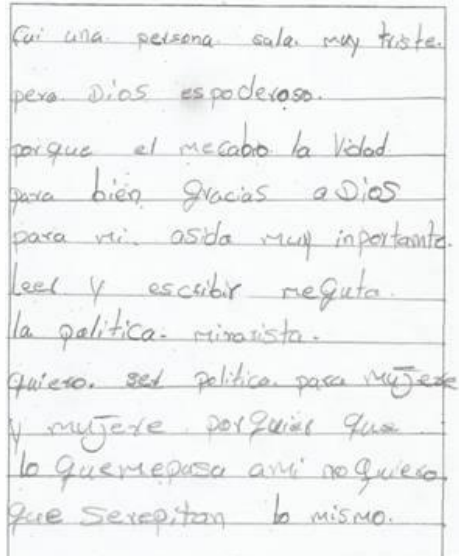 fui una persona sola. muy triste.
pero Dios espoderoso.
porque el mecabio la Vidad
para bien gracias a Dios
para mi. asido muy inportante.
leel y escribir meguta.
la politica. minorista.
quiero. sel politica. para mujere
y mujere porquier que
lo quemepasa ami no quiero
que serepitan lo mismo.